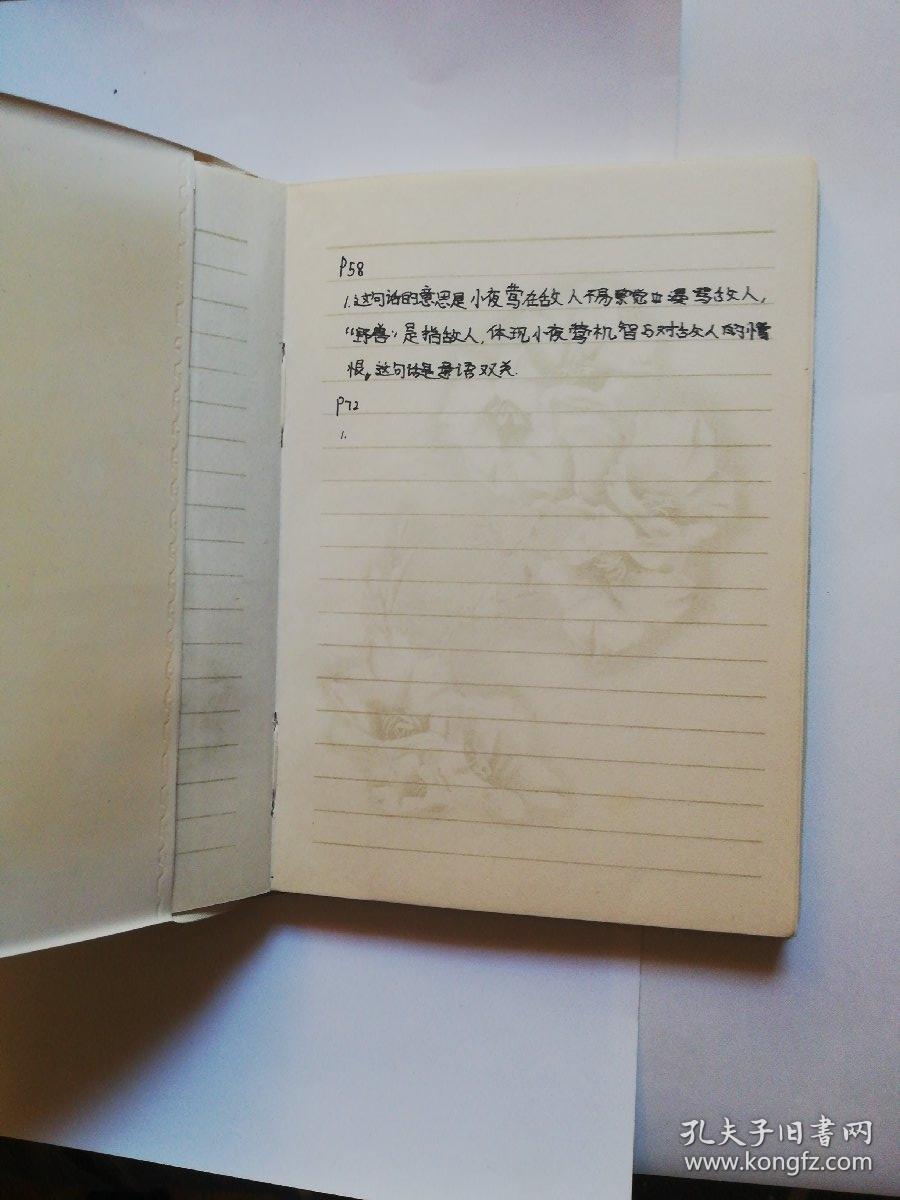 P58
1.这句话的意思是小夜莺在敌人不易察觉中辱骂敌人,
“野兽”是指敌人,体现小夜莺机智与对敌人的憎
恨,这句话是意语双关.
P72
1.
孔夫子旧書网
www.kongfz.com